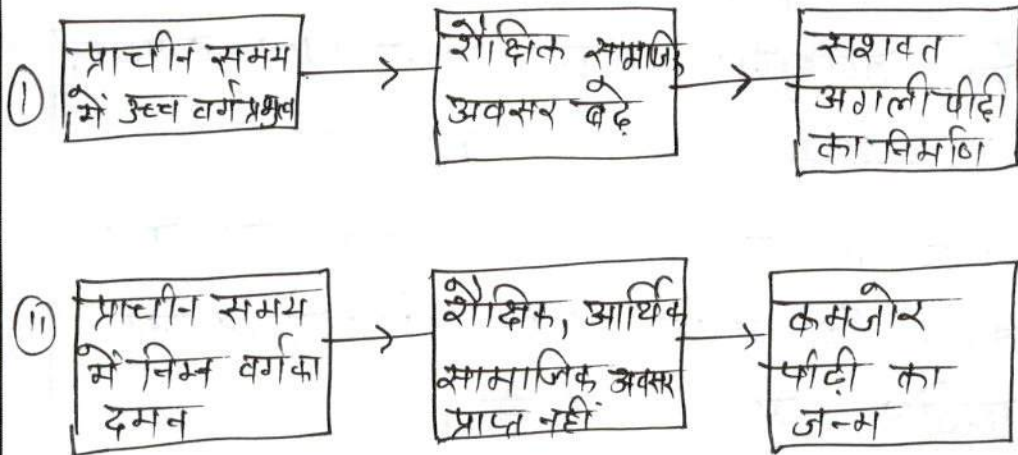 ① प्राचीन समय
में उच्च वर्ग प्रभुत्व
शैक्षिक सामाजिक
अवसर बढ़े
सशक्त
अगली पीढ़ी
का निर्माण
⑪ प्राचीन समय
में निम्न वर्ग का
दमन
शैक्षिक, आर्थिक
सामाजिक अवसर
प्राप्त नहीं
कमजोर
पीढ़ी का
जन्म